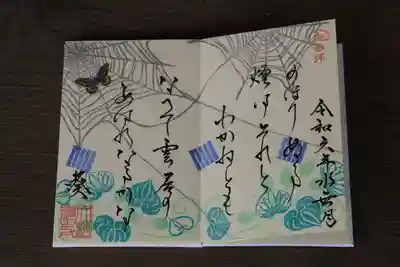 令和六年水無月
のほりぬる
煙はそれと
わかねとも
なへて雲居の
あはれなるかな
葵